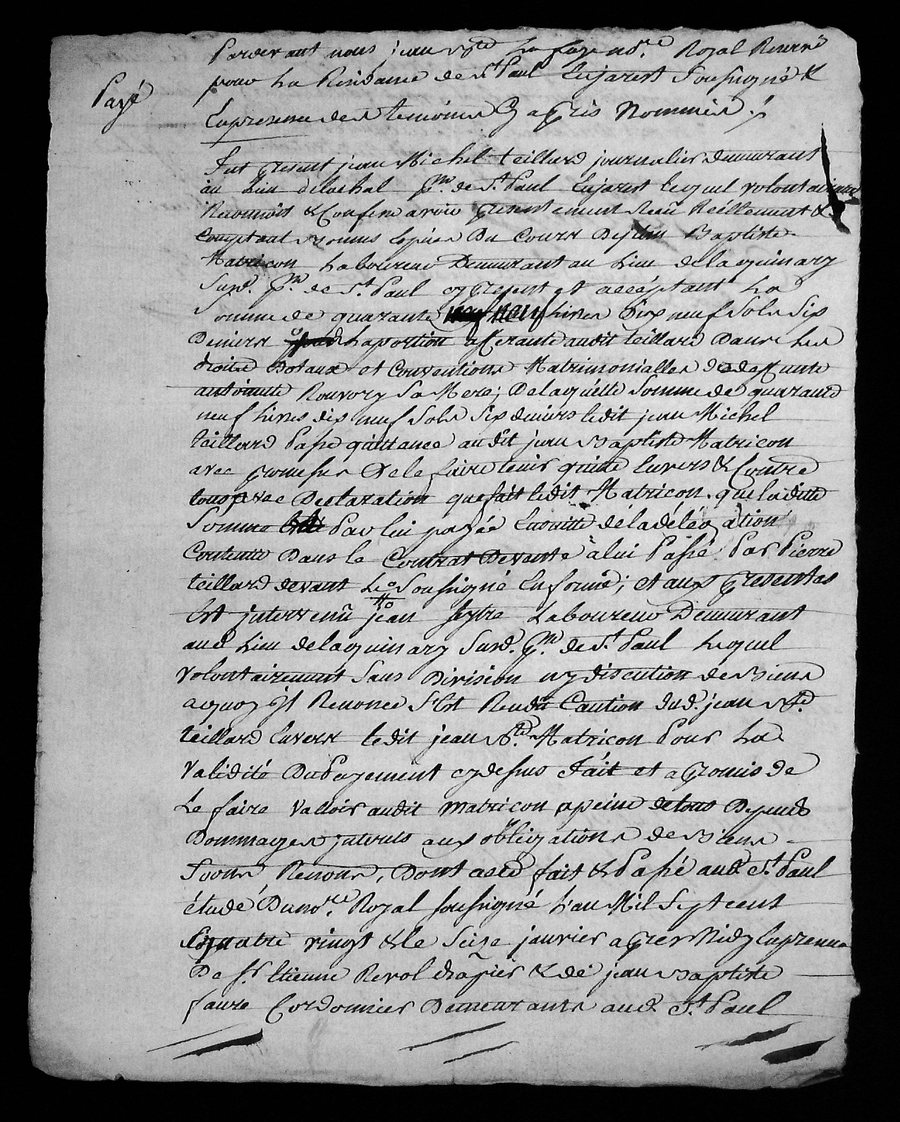 Pardevant nous jean bpte La faye no.re Royal Reservé
pour La Residance de St. Paul En jarest soussigné &
Payé
En presence des temoins cy apres Nommés ./
fut present jean Michel teillard journalier demurant
au Lieu de Lachal psse de St. Paul En jarest Lequel volontairement
Reconnoit & Confesse avoir presentement Reçu Reellement &
Comptant Espèces Du Cours De jean Baptiste
Matricon Laboureur Demurant au Lieu de laquinary
Susd. psse de St. Paul cy present et acceptant La
Somme de quarante neuf Livres Dix neuf Sols Six
Deniers La portion afferante audit teillard Dans Les
droits Dotaux et Conventions Matrimonialles de deffunte
antoinette Rouvory Sa Mere; De laquelle Somme de quarante
neuf Livres dix neuf Sols Six deniers ledit jean Michel
teillard Passe quittance audit jean Baptiste Matricon
avec promesse De le faire tenir quitte Envers & Contre
tous avec Declaration que fait ledit Matricon que ladite
Somme Par lui payée Ensuitte de la délégation
Contenue Dans le Contrat De vente à lui Passé Par Pierre
teillard devant Le no.re Soussigné En forme; et aux presentes
Est intervenu jean Laboureur Demurant
aud. Lieu de laquinary Susd. psse de St. Paul Lequel
volontairement Sans Division ny discution de Biens
a quoy il Renonce s'est Rendu Caution dud. jean
teillard Envers ledit jean Bte. Matricon Pour La
validité Du Payement cy dessus fait et a promis de
Le faire valloir audit matricon a peine de tous Depends
Dommages interets aux obligations de Biens
Sous Renons. Dont acte fait & Passé aud. St. Paul
étude Du no.re Royal soussigné L'an Mil Sept cent
quatre vingt & le Seize janvier apres Midy En presence
De Sr. Etienne Revol & de jean Baptiste
faure Cordonnier Demeurants aud. St. Paul